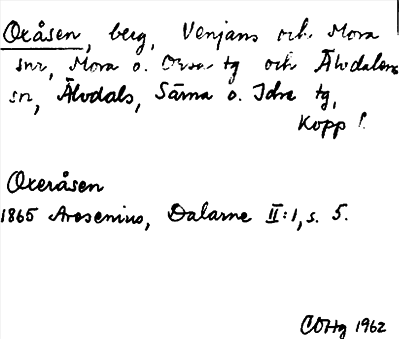 Oxåsen, berg, Venjans och Mora
snr, Mora o. Orsa tg och Älvdalens
sn, Älvdals, Särna o. Idre tg,
Kopp l.
Oxeråsen
1865 Arosenius, Dalarne II:1, s. 5.
1962